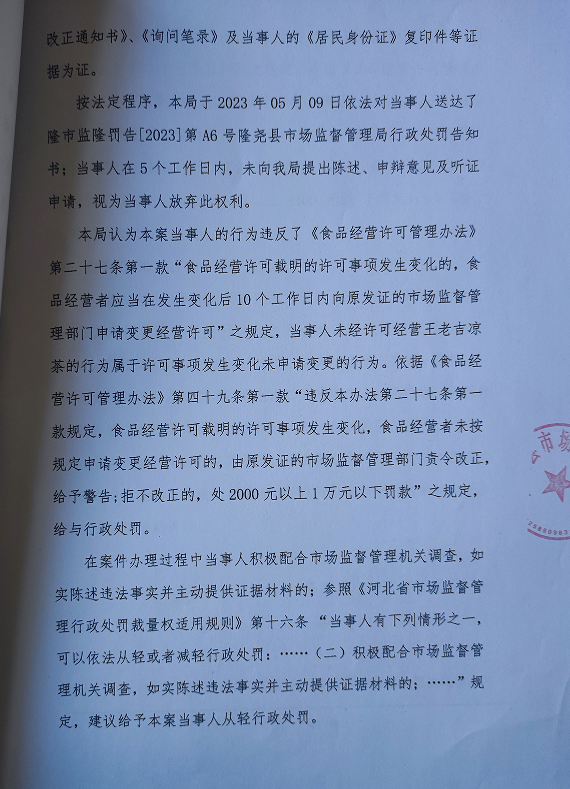 改正通知书》、《询问笔录》及当事人的《居民身份证》复印件等证
据为证。
按法定程序，本局于 2023 年 05 月 09 日依法对当事人送达了
隆市监隆罚告[2023]第 A6 号隆尧县市场监督管理局行政处罚告知
书；当事人在 5 个工作日内，未向我局提出陈述、申辩意见及听证
申请，视为当事人放弃此权利。
本局认为本案当事人的行为违反了《食品经营许可管理办法》
第二十七条第一款“食品经营许可载明的许可事项发生变化的，食
品经营者应当在发生变化后 10 个工作日内向原发证的市场监督管
理部门申请变更经营许可”之规定，当事人未经许可经营王老吉凉
茶的行为属于许可事项发生变化未申请变更的行为。依据《食品经
营许可管理办法》第四十九条第一款“违反本办法第二十七条第一
款规定，食品经营许可载明的许可事项发生变化，食品经营者未按
规定申请变更经营许可的，由原发证的市场监督管理部门责令改正，
给予警告;拒不改正的，处 2000 元以上 1 万元以下罚款”之规定，
给与行政处罚。
在案件办理过程中当事人积极配合市场监督管理机关调查，如
实陈述违法事实并主动提供证据材料的；参照《河北省市场监督管
理行政处罚裁量权适用规则》第十六条 “当事人有下列情形之一，
可以依法从轻或者减轻行政处罚：……（二）积极配合市场监督管
理机关调查，如实陈述违法事实并主动提供证据材料的；……”规
定，建议给予本案当事人从轻行政处罚。
市场